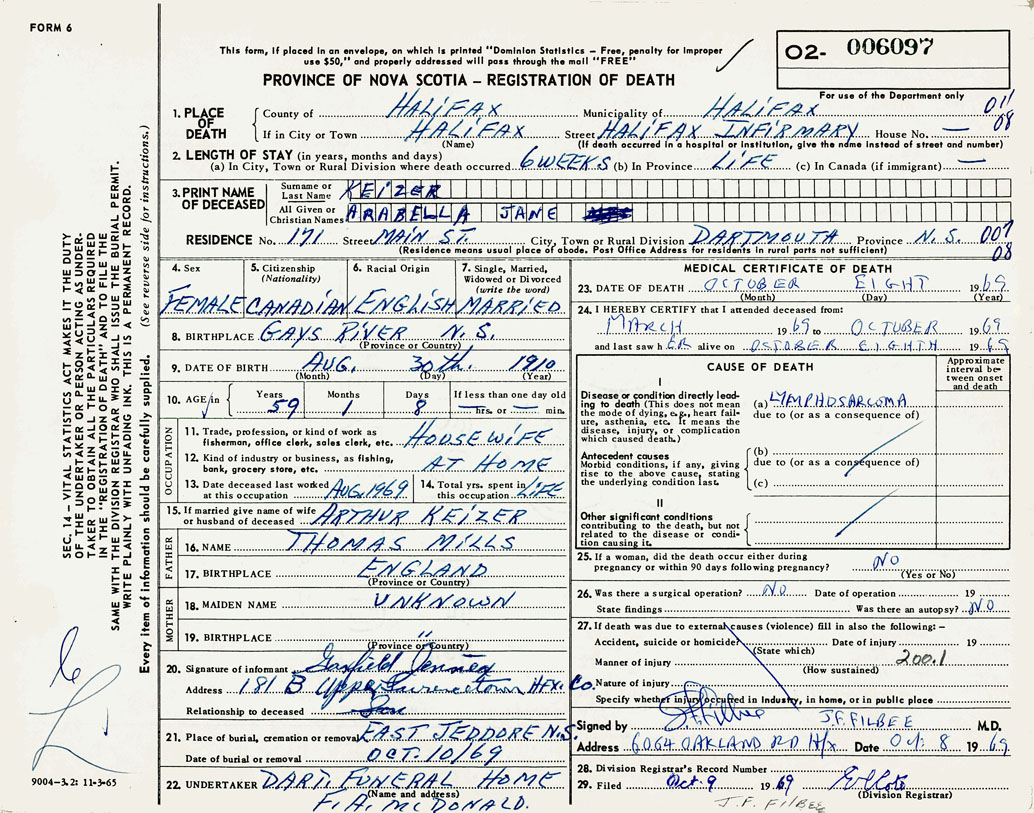 FORM 6
This form, if placed in an envelope, on which is printed "Dominion Statistics – Free, penalty for improper
use $50," and properly addressed will pass through the mail "FREE"
PROVINCE OF NOVA SCOTIA – REGISTRATION OF DEATH
O2- 006097
For use of the Department only
011
08
1. PLACE OF DEATH
County of HALIFAX Municipality of HALIFAX
If in City or Town HALIFAX Street HALIFAX INFIRMARY House No. —
(Name) (If death occurred in a hospital or institution, give the name instead of street and number)
2. LENGTH OF STAY (in years, months and days)
(a) In City, Town or Rural Division where death occurred 6 WEEKS (b) In Province LIFE (c) In Canada (if immigrant) —
3. PRINT NAME OF DECEASED
Surname or Last Name KEIZER
All Given or Christian Names ARABELLA JANE
RESIDENCE No. 171 Street MAIN ST. City, Town or Rural Division DARTMOUTH Province N.S. 007
08
(Residence means usual place of abode. Post Office Address for residents in rural parts not sufficient)
4. Sex FEMALE
5. Citizenship (Nationality) CANADIAN
6. Racial Origin ENGLISH
7. Single, Married, Widowed or Divorced (write the word) MARRIED
8. BIRTHPLACE GAYS RIVER N.S.
(Province or Country)
9. DATE OF BIRTH AUG. 30th. 1910
(Month) (Day) (Year)
10. AGE in Years 59 Months 1 Days 8 If less than one day old — hrs. or — min.
OCCUPATION
11. Trade, profession, or kind of work as fisherman, office clerk, sales clerk, etc. HOUSEWIFE
12. Kind of industry or business, as fishing, bank, grocery store, etc. AT HOME
13. Date deceased last worked at this occupation AUG. 1969
14. Total yrs. spent in this occupation LIFE
15. If married give name of wife or husband of deceased ARTHUR KEIZER
FATHER
16. NAME THOMAS MILLS
17. BIRTHPLACE ENGLAND
(Province or Country)
MOTHER
18. MAIDEN NAME UNKNOWN
19. BIRTHPLACE "
(Province or Country)
20. Signature of informant Garfield
Address 181 B Upper Lawrencetown HFX. Co.
Relationship to deceased Son
21. Place of burial, cremation or removal EAST JEDDORE N.S.
Date of burial or removal OCT. 10/69
22. UNDERTAKER DART. FUNERAL HOME
(Name and address)
F. A. MCDONALD.
MEDICAL CERTIFICATE OF DEATH
23. DATE OF DEATH OCTOBER EIGHT 1969
(Month) (Day) (Year)
24. I HEREBY CERTIFY that I attended deceased from:
MARCH 1969 to OCTOBER 1969
and last saw hER alive on OCTOBER EIGHTH 1969
CAUSE OF DEATH
Approximate interval between onset and death
I
Disease or condition directly leading to death (This does not mean the mode of dying, e.g., heart failure, asthenia, etc. It means the disease, injury, or complication which caused death.)
(a) LYMPHOSARCOMA
due to (or as a consequence of)
Antecedent causes
Morbid conditions, if any, giving rise to the above cause, stating the underlying condition last.
(b)
due to (or as a consequence of)
(c)
II
Other significant conditions
contributing to the death, but not related to the disease or condition causing it.
25. If a woman, did the death occur either during pregnancy or within 90 days following pregnancy? NO
(Yes or No)
26. Was there a surgical operation? NO Date of operation 19
State findings Was there an autopsy? NO
27. If death was due to external causes (violence) fill in also the following: –
Accident, suicide or homicide? Date of injury 19
(State which)
Manner of injury 200.1
(How sustained)
Nature of injury
Specify whether injury occurred in Industry, in home, or in public place
Signed by J.F. Filbee J.F. FILBEE M.D.
Address 6064 OAKLAND RD Hfx Date Oct 8 1969
28. Division Registrar's Record Number
29. Filed Oct. 9 1969
(Division Registrar)
J.F. FILBEE
SEC. 14 – VITAL STATISTICS ACT MAKES IT THE DUTY
OF THE UNDERTAKER OR PERSON ACTING AS UNDER-
TAKER TO OBTAIN ALL THE PARTICULARS REQUIRED
IN THE "REGISTRATION OF DEATH" AND TO FILE THE
SAME WITH THE DIVISION REGISTRAR WHO SHALL ISSUE THE BURIAL PERMIT.
WRITE PLAINLY WITH UNFADING INK. THIS IS A PERMANENT RECORD.
Every item of information should be carefully supplied. (See reverse side for instructions.)
9004-3.2: 11-3-65